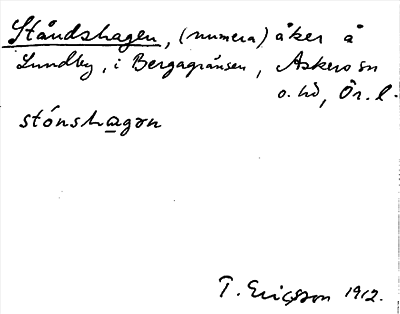 Ståndshagen, (numera) åker å
Lundby, i Bergagränsen, Askers sn
o. hd, Ör. l.
stónshagən
T. Ericsson 1912.